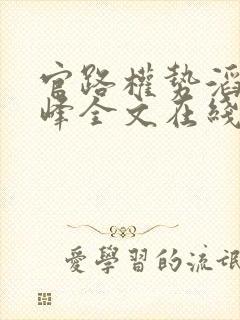 官路權勢滔
峰全文在綫
愛學習的流氓